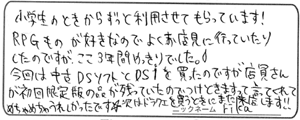 小学生のときからずっと利用させてもらっています!
RPGものが好きなのでよくお店見に行っていたり
したのですが、ここ3年間ぬっきりでした。
今回は中古DSソフトとDSiを買ったのですが店員さん
が初回限定版の品が残っていたのでつけてきますって言ってくれて
めちゃめちゃうれしかったです 次はドラクエを買うときにまた来店します!!
ニックネーム Fika